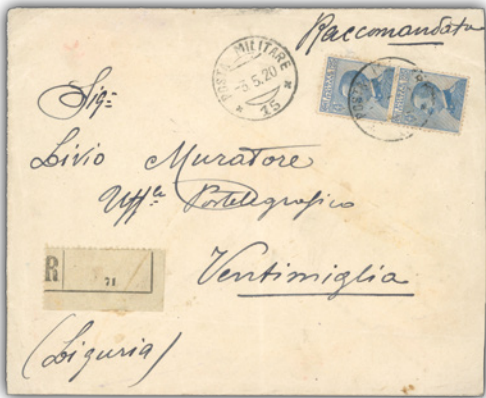 Raccomandata
POSTA MILITARE
-3.5.20
15
Sig:
Livio Muratore
Uff.le Postelegrafico
R
71
Ventimiglia
(Liguria)